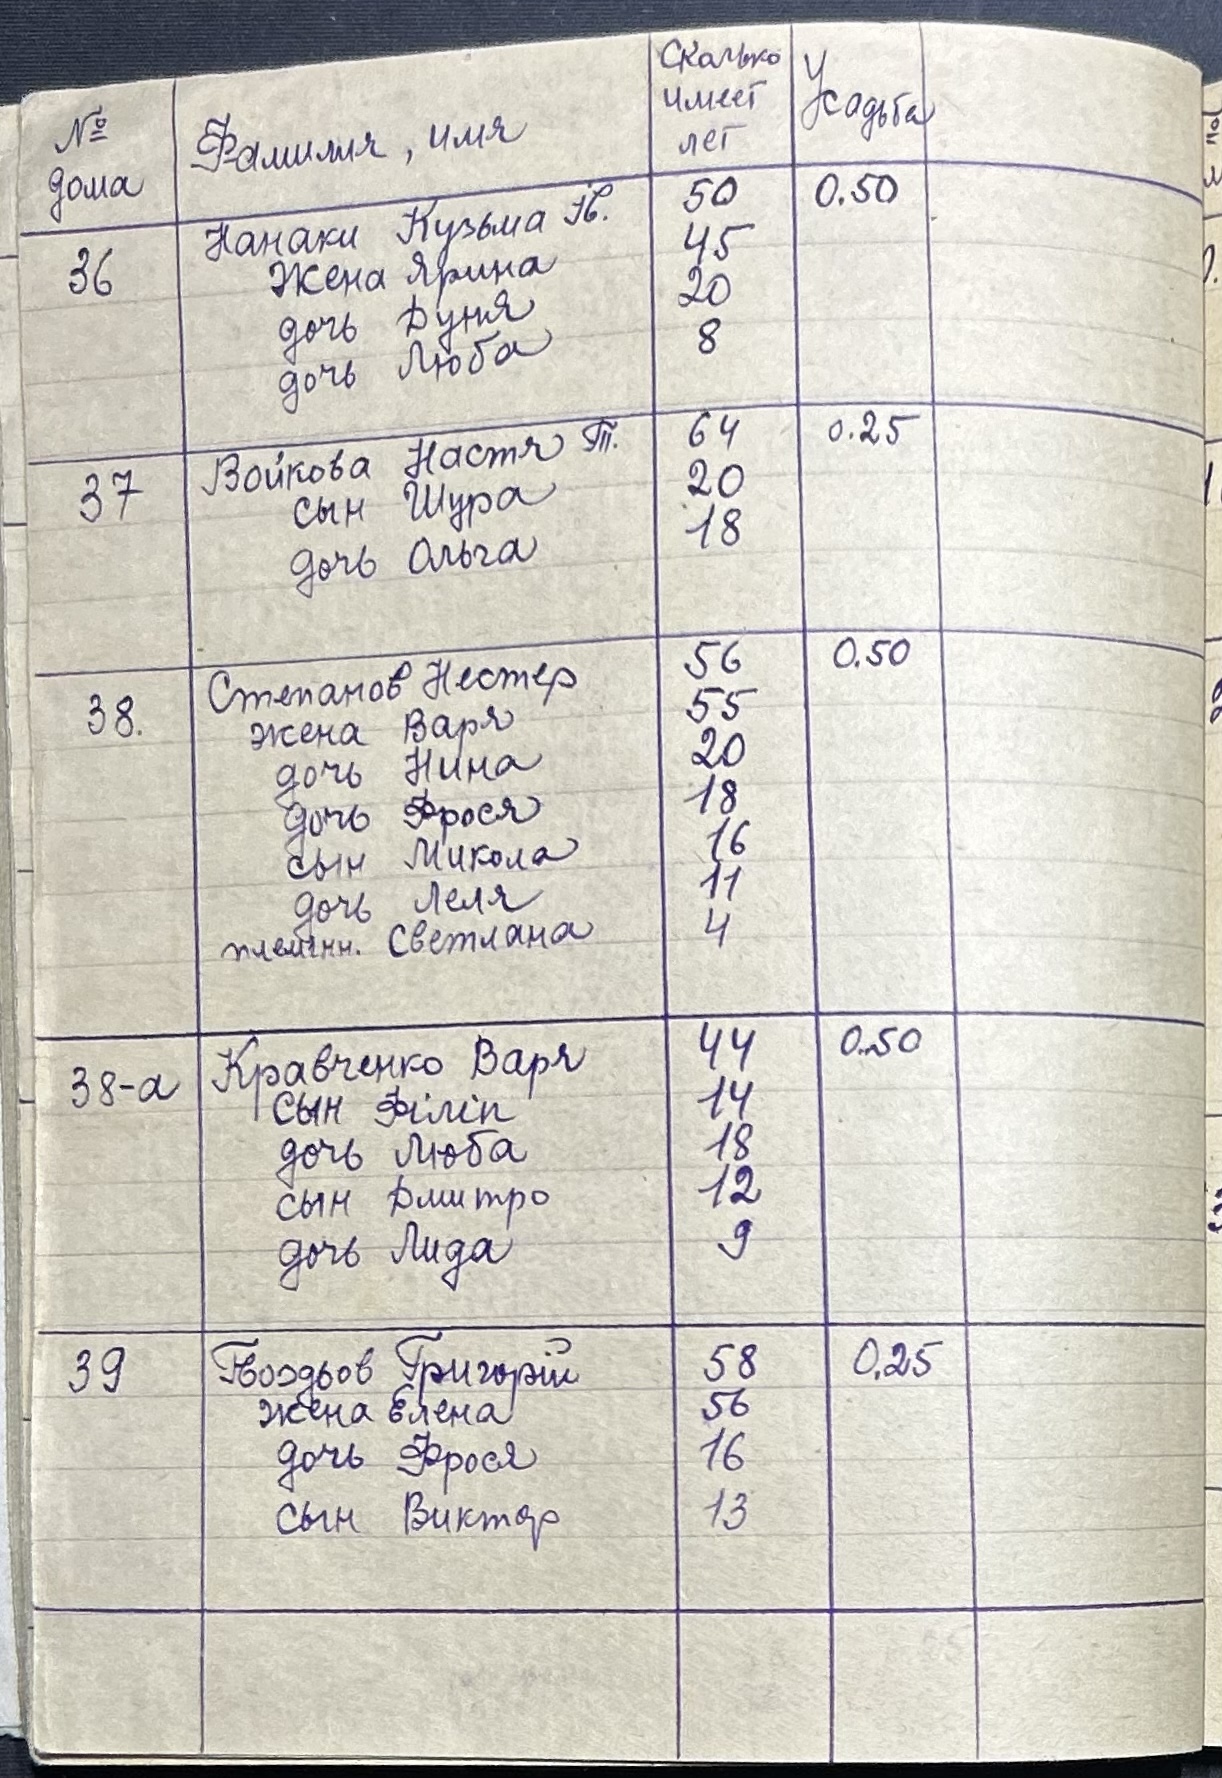 № дома Фамилия, имя Сколько имеет лет Усадьба
36 Нанаки Кузьма Ів. 50 0.50
жена Ярина 45
дочь Дуня 20
дочь Люба 8
37 Войкова Настя Т. 64 0.25
сын Шура 20
дочь Ольга 18
38. Степанов Нестер 56 0.50
жена Варя 55
дочь Нина 20
дочь Фрося 18
сын Микола 16
дочь Леля 11
племянн. Светлана 4
38-а Кравченко Варя 44 0.50
сын Філіп 14
дочь Люба 18
сын Дмитро 12
дочь Лида 9
39 Гвоздьов Григорій 58 0,25
жена Елена 56
дочь Фрося 16
сын Виктор 13